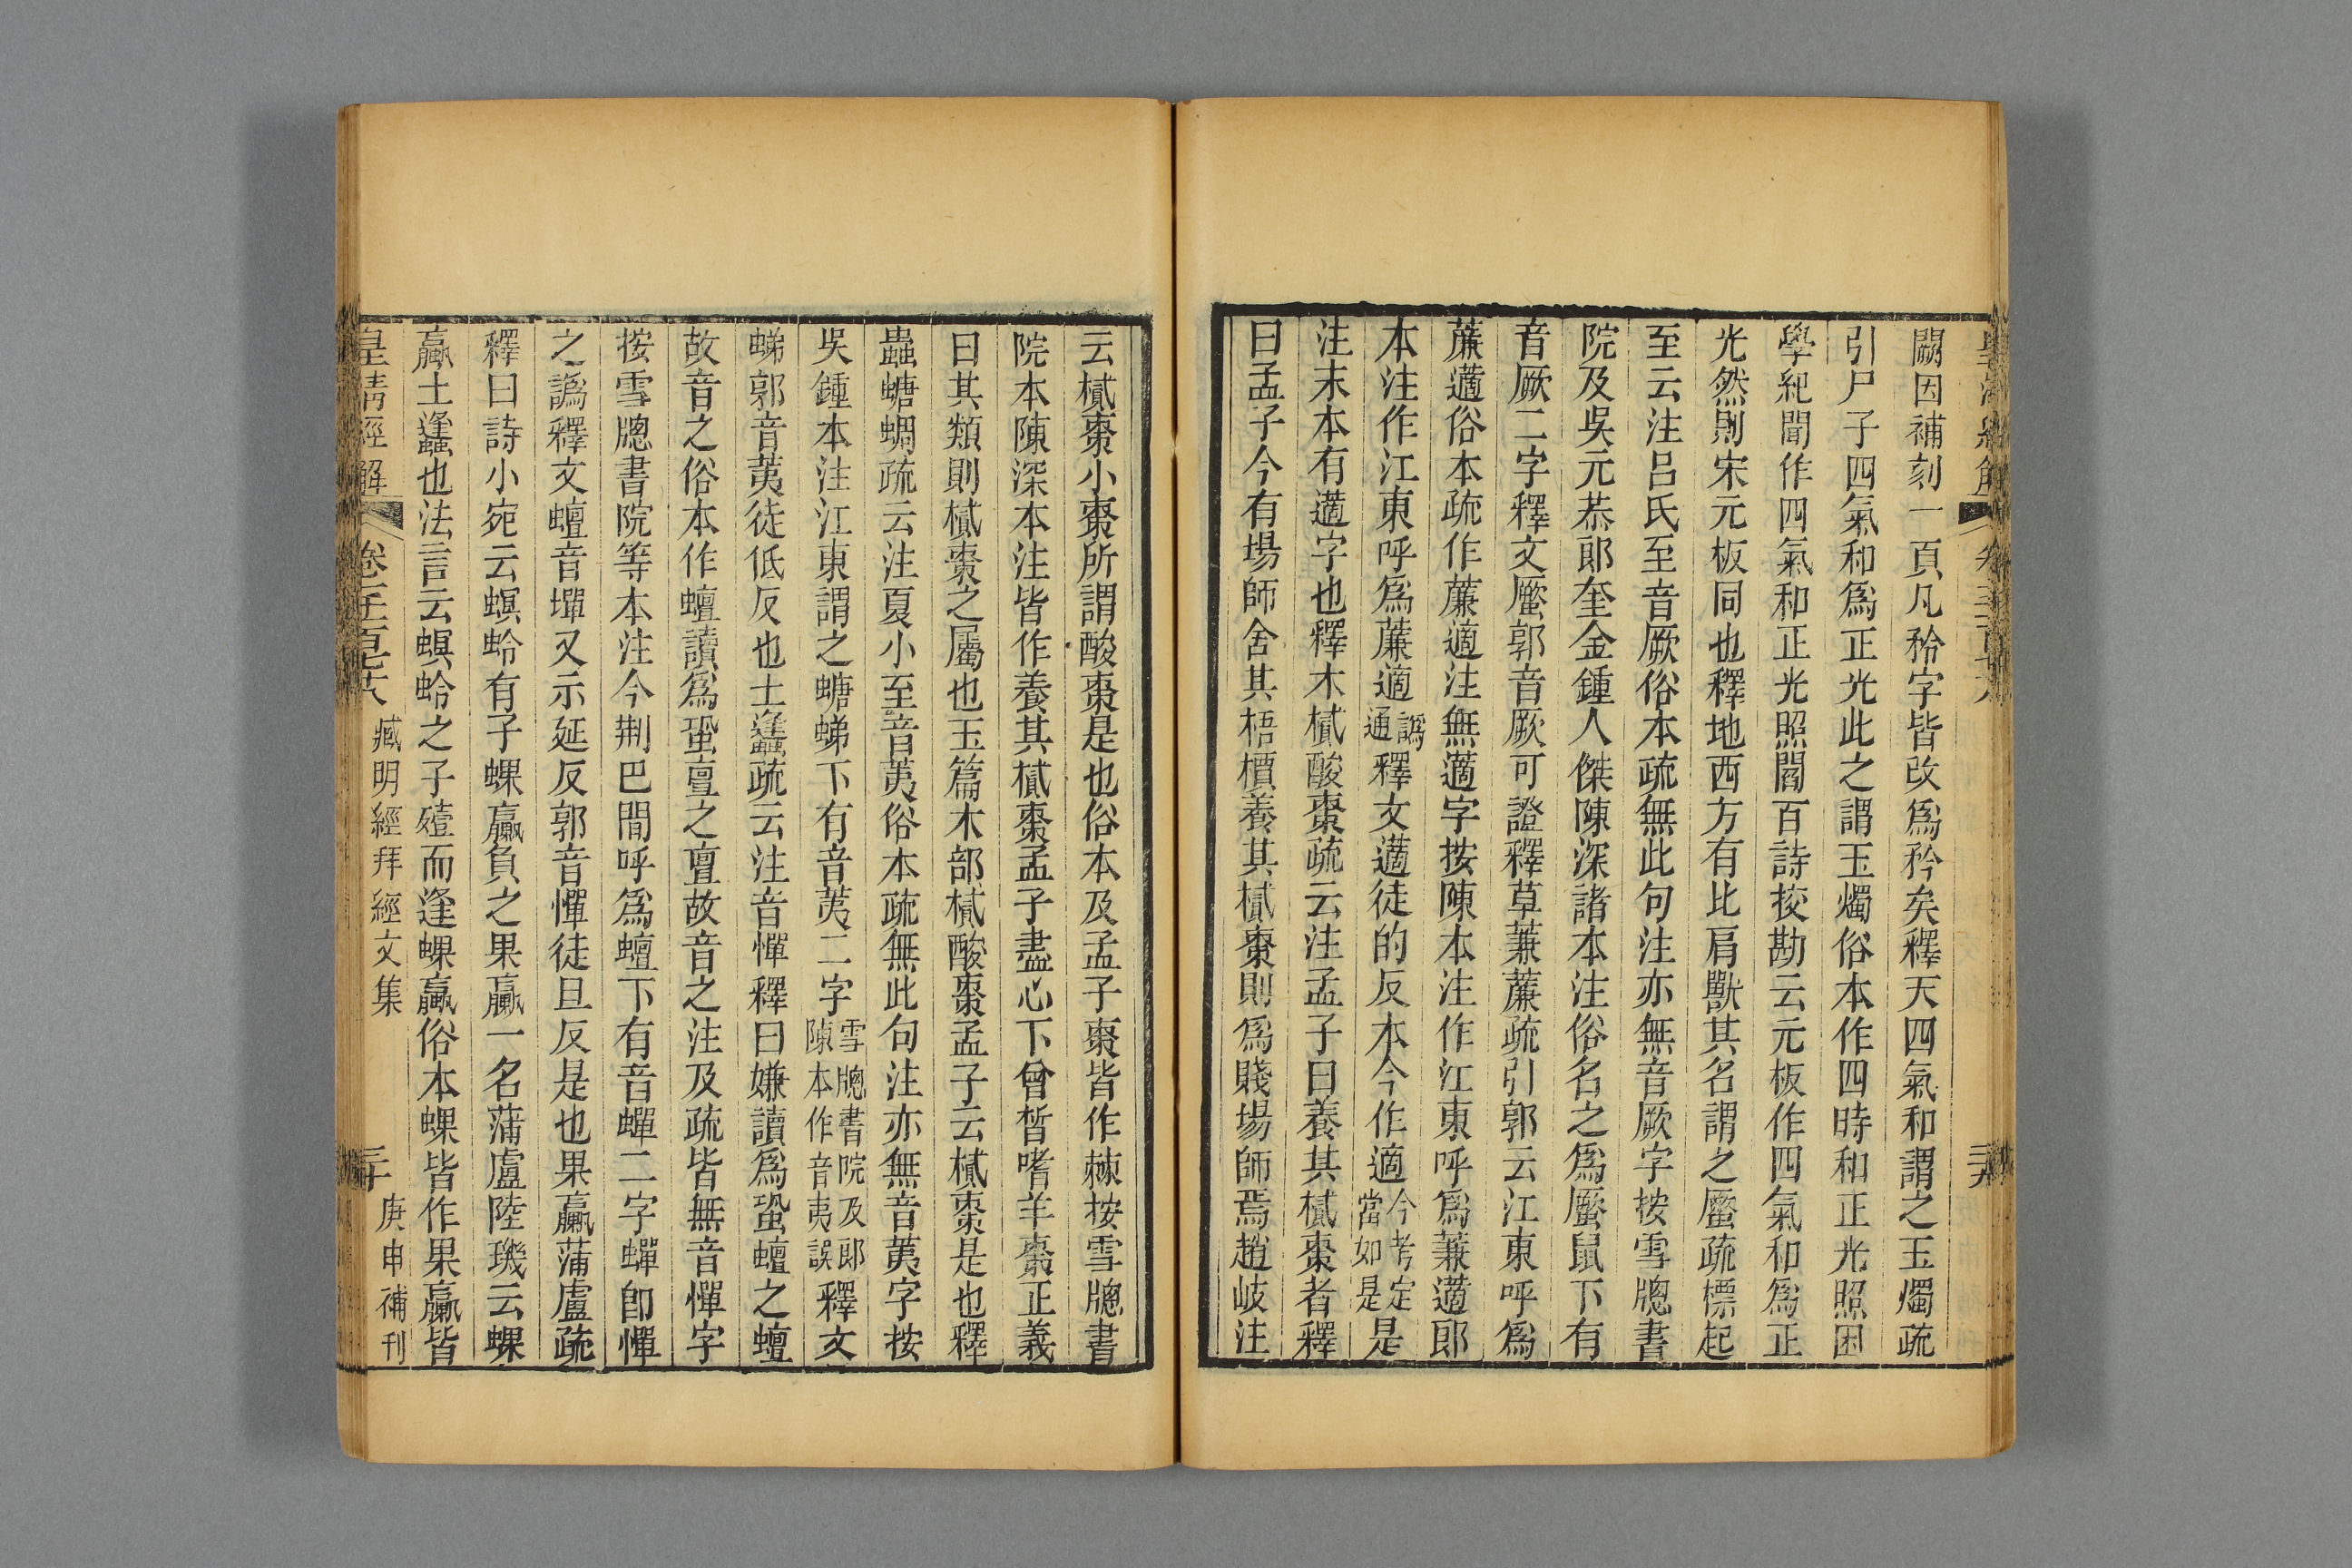 闕因補刻一頁凡矝字皆改爲矜矣釋天四氣和謂之玉燭疏
引尸子四氣和爲正光此之謂玉燭俗本作四時和正光照困
學紀聞作四氣和正光照閻百詩挍勘云元板作四氣和爲正
光然則宋元板同也釋地西方有比肩獸其名謂之蟨疏標起
至云注呂氏至音厥俗本疏無此句注亦無音厥字按雪牕書
院及吳元恭郎奎金鍾人傑陳深諸本注俗名之爲蟨鼠下有
音厥二字釋文蟨郭音厥可證釋草蒹薕疏引郭云江東呼爲
薕藡俗本疏作薕適注無藡字按陳本注作江東呼爲蒹藡郎
本注作江東呼爲薕適譌通釋文藡徒的反本今作適今考定當如是是
注末本有藡字也釋木樲酸棗疏云注孟子曰養其樲棗者釋
曰孟子今有場師舍其梧檟養其樲棗則爲賤場師焉趙岐注
云樲棗小棗所謂酸棗是也俗本及孟子棗皆作棘按雪牕書
院本陳深本注皆作養其樲棗孟子盡心下曾晳嗜羊棗正義
曰其類則樲棗之屬也玉篇木部樲酸棗孟子云樲棗是也釋
蟲螗蜩疏云注夏小至音荑俗本疏無此句注亦無音荑字按
吳鍾本注江東謂之螗蛦下有音荑二字雪牕書院及郎陳本作音夷誤釋文
蛦郭音荑徒低反也土蠭疏云注音憚釋曰嫌讀爲蛩蟺之蟺
故音之俗本作蟺讀爲蛩亶之亶故音之注及疏皆無音憚字
按雪牕書院等本注今荆巴閒呼爲蟺下有音蟬二字蟬卽憚
之譌釋文蟺音墠又示延反郭音憚徒旦反是也果蠃蒲盧疏
釋曰詩小宛云螟蛉有子蜾蠃負之果蠃一名蒲盧陸璣云蜾
蠃土蠭也法言云螟蛉之子殪而逢蜾蠃俗本蜾皆作果蠃皆
皇清經解 卷 臧明經拜經文集 三十 庚申補刊